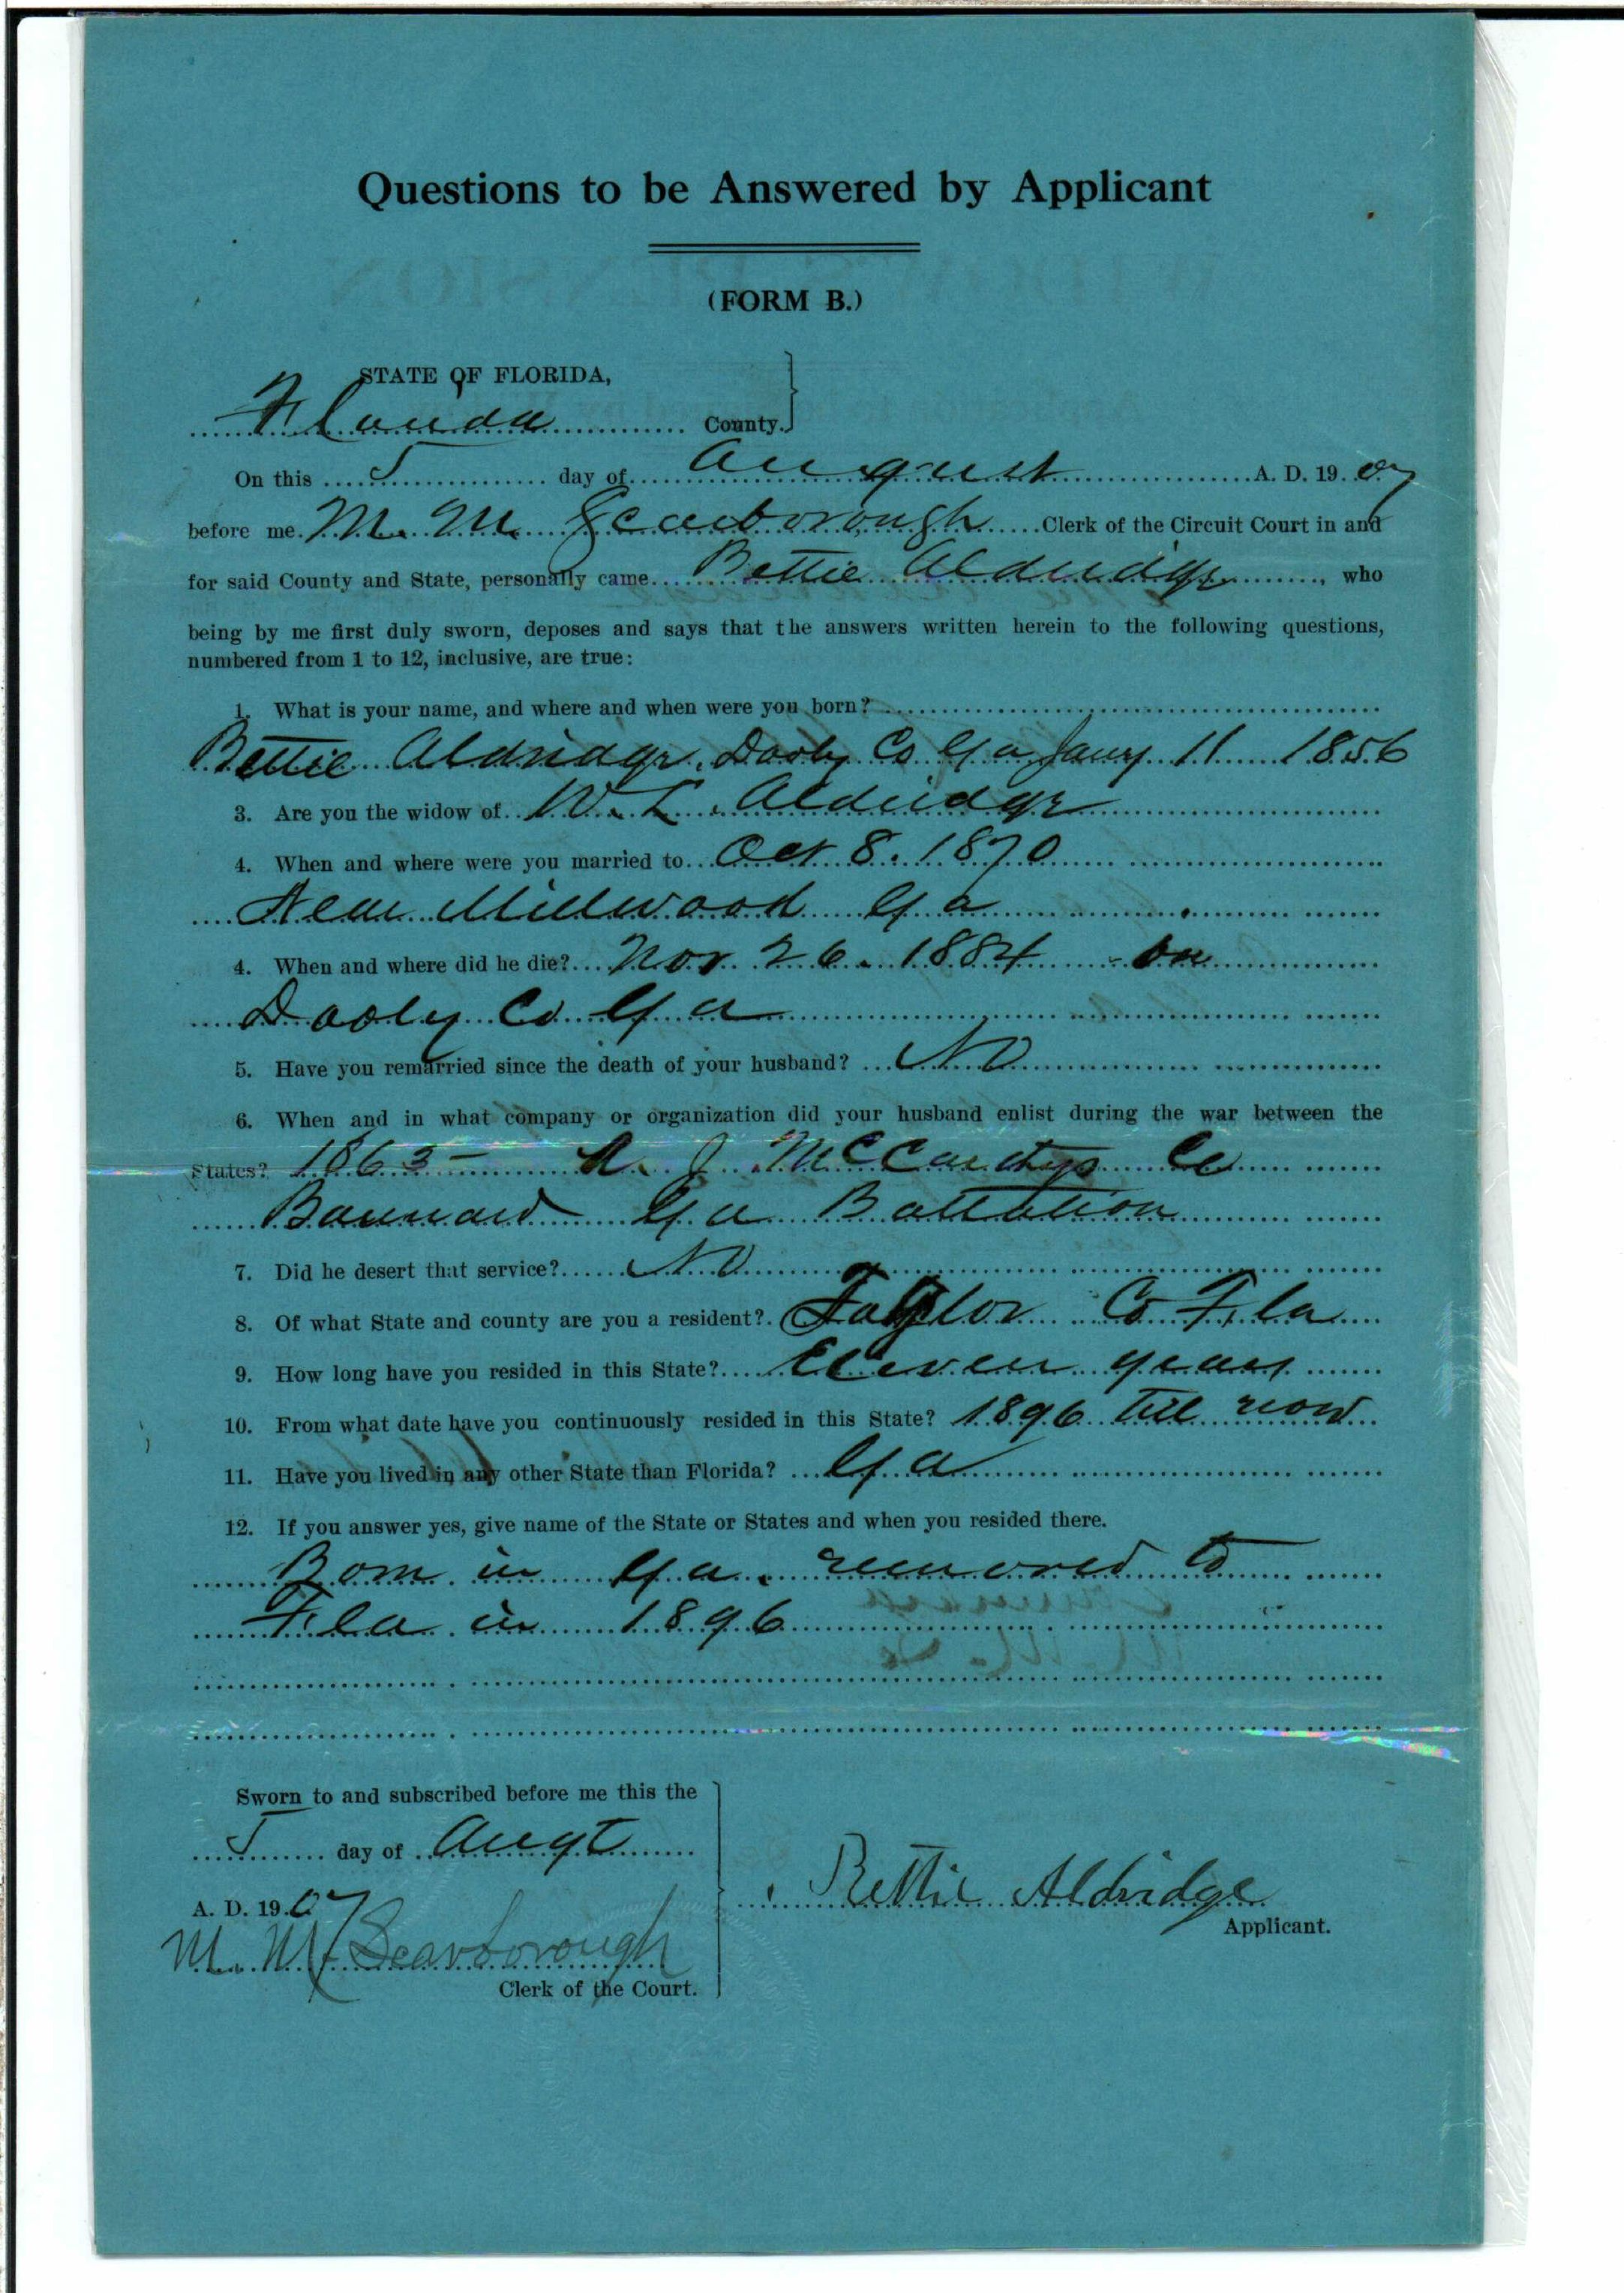 Questions to be Answered by Applicant
(FORM B.)
STATE OF FLORIDA,
Florida County.
On this 5 day of August A. D. 1907
before me M. M. Scarborough Clerk of the Circuit Court in and
for said County and State, personally came Bettie Aldridge, who
being by me first duly sworn, deposes and says that the answers written herein to the following questions,
numbered from 1 to 12, inclusive, are true:
1. What is your name, and where and when were you born?
Bettie Aldridge, Dooly Co Ga Jany 11 1856
3. Are you the widow of W. L. Aldridge
4. When and where were you married to Oct 8. 1870
Millwood Ga
4. When and where did he die? Nov 26. 1884 - on
Dooly Co Ga
5. Have you remarried since the death of your husband? No
6. When and in what company or organization did your husband enlist during the war between the
States? 1863 - J. McCartys Co
Ga Battalion
7. Did he desert that service? No
8. Of what State and county are you a resident? Taylor Co Fla
9. How long have you resided in this State? Eleven years
10. From what date have you continuously resided in this State? 1896 till now
11. Have you lived in any other State than Florida? Ga
12. If you answer yes, give name of the State or States and when you resided there.
Born in Ga. removed to
Fla in 1896
Sworn to and subscribed before me this the
5 day of Augt
A. D. 1907
M. M. Scarborough
Clerk of the Court.
Bettie Aldridge
Applicant.